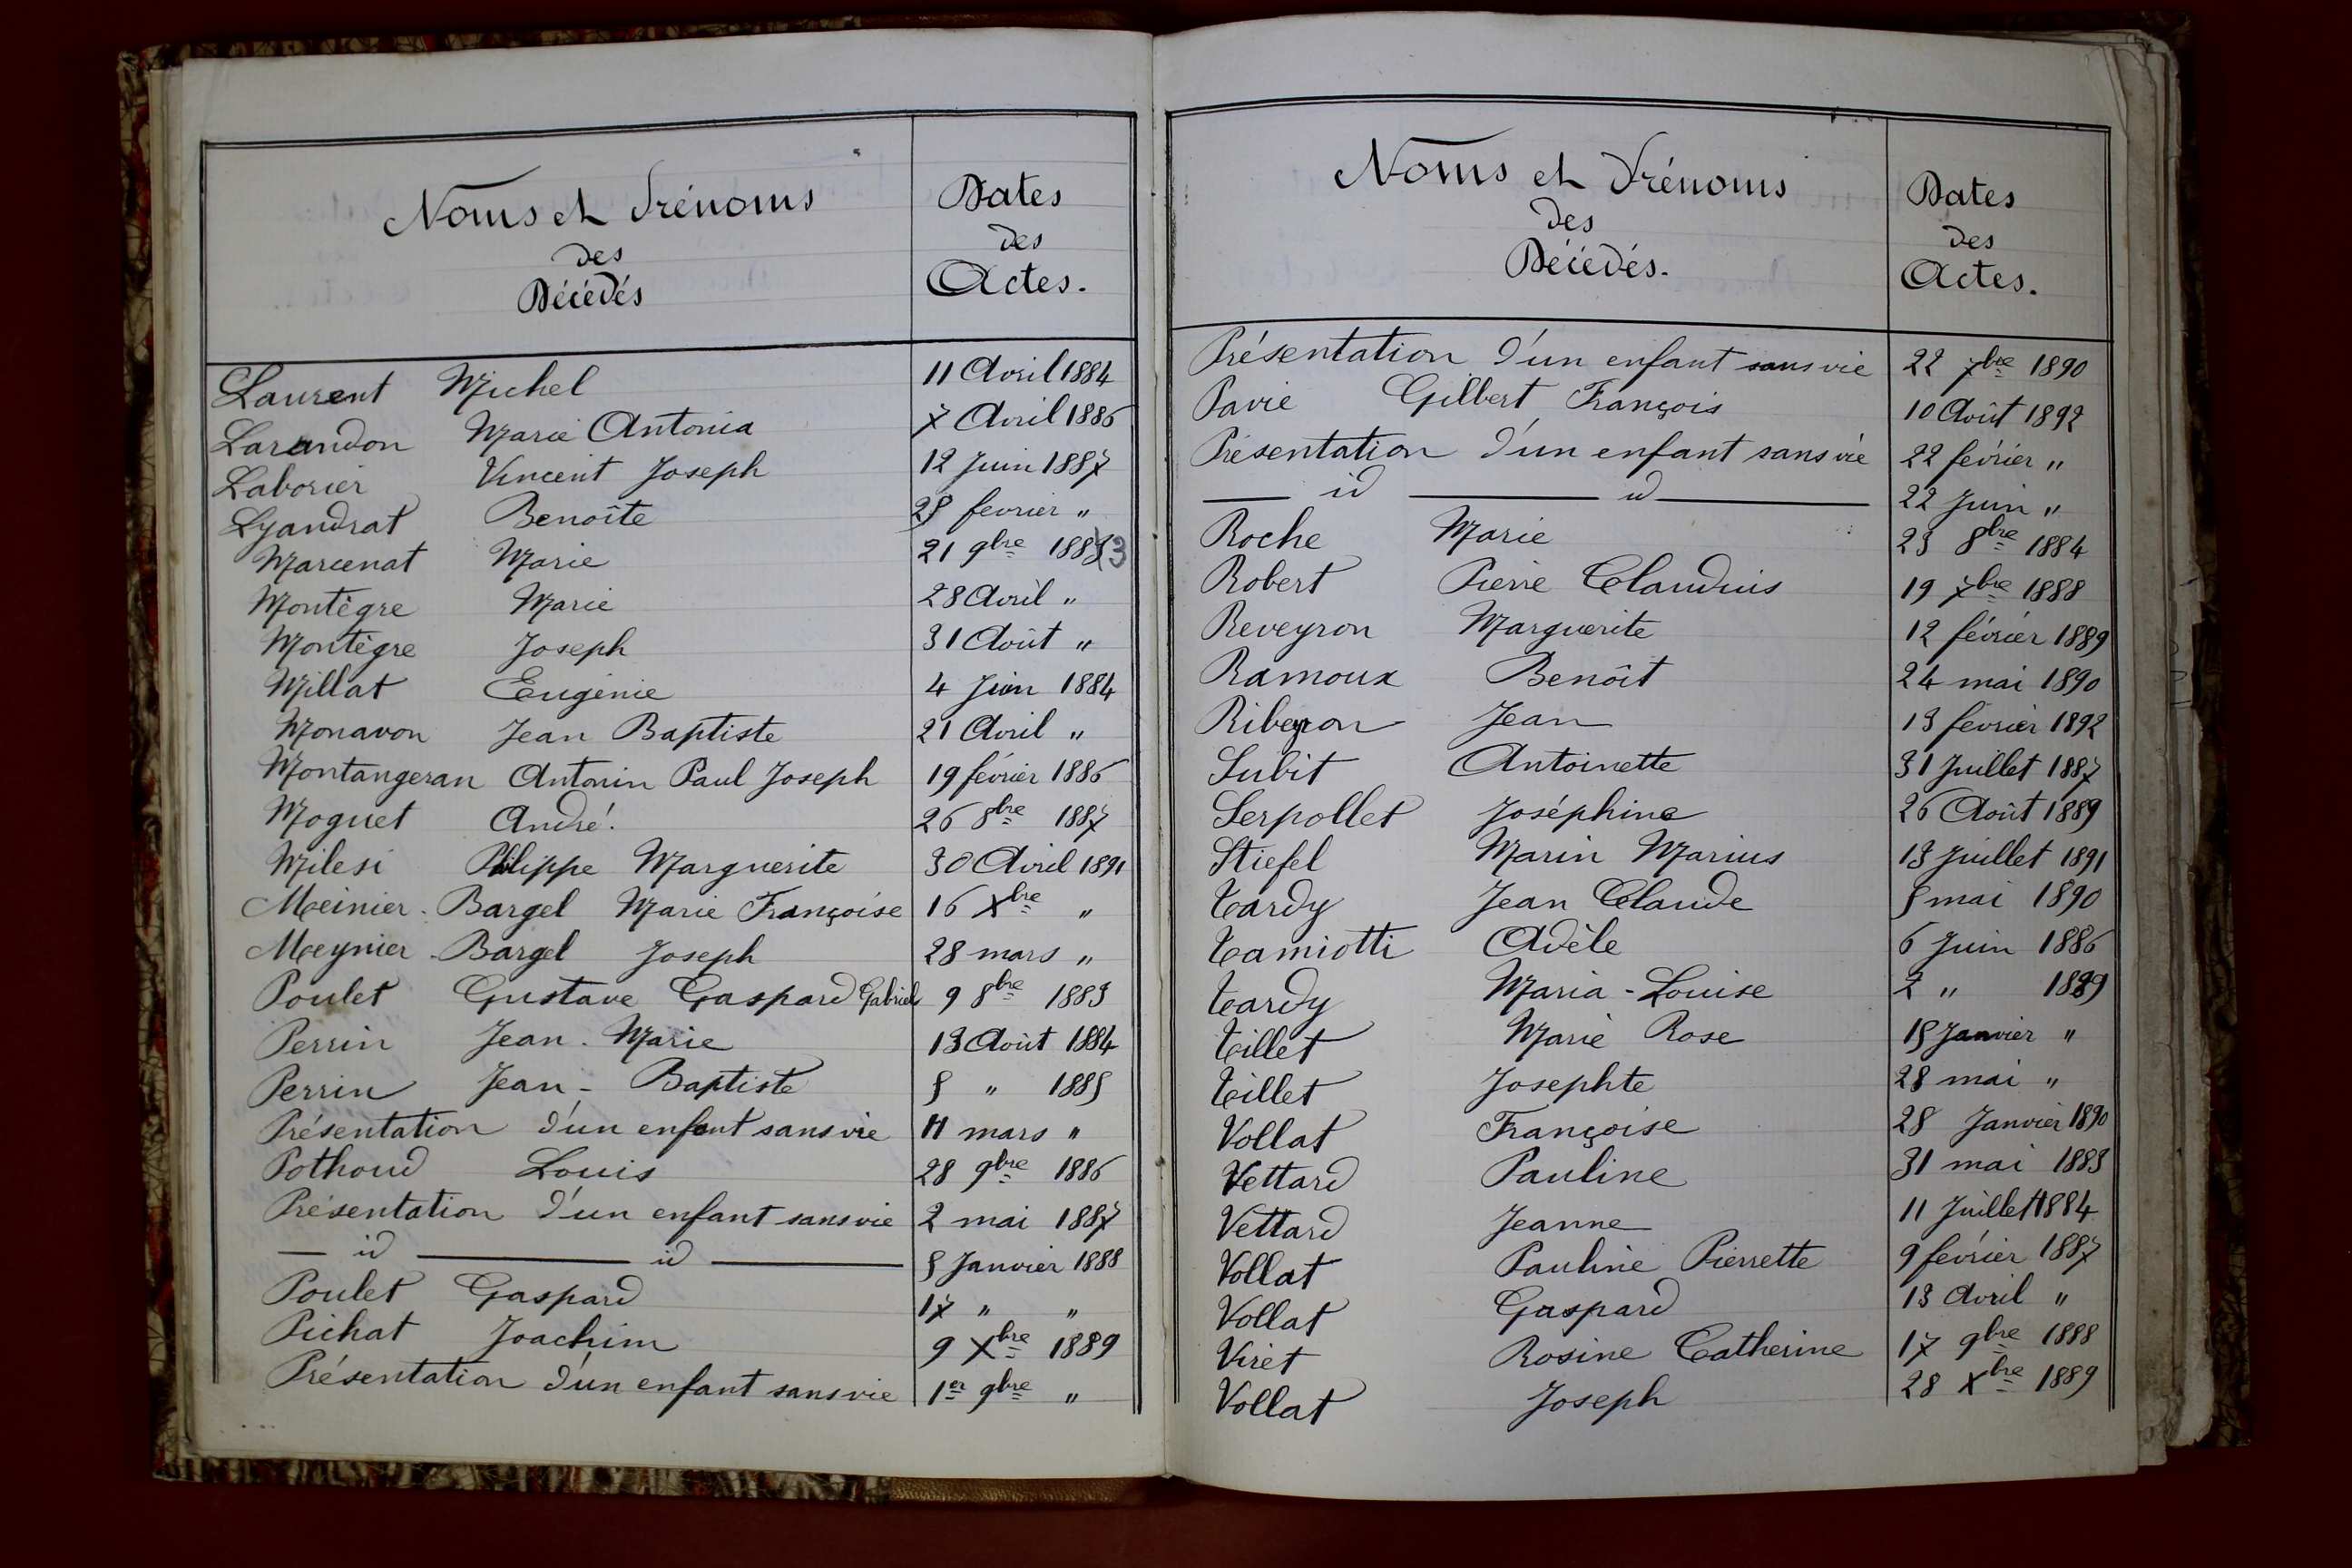 Noms et Prénoms
des
Décédés
Dates
des
Actes.
Laurent Michel 11 Avril 1884
Larandon Marie Antonia 7 Avril 1886
Laborier Vincent Joseph 12 Juin 1887
Lyandrat Benoîte 25 fevrier "
Marcenat Marie 21 9bre 1883
Montègre Marie 28 Avril "
Montègre Joseph 31 Août "
Millat Eugénie 4 Juin 1884
Monavon Jean Baptiste 21 Avril "
Montangeran Antonin Paul Joseph 19 février 1886
Moguet André. 26 8bre 1887
Milesi Philippe Marguerite 30 Avril 1891
Meinier-Bargel Marie Françoise 16 Xbre "
Meynier-Bargel Joseph 28 mars "
Poulet Gustave Gaspard Gabriel 9 8bre 1883
Perrin Jean-Marie 13 Août 1884
Perrin Jean-Baptiste 5 " 1885
Présentation d'un enfant sans vie 11 mars "
Pothoud Louis 28 9bre 1886
Présentation d'un enfant sans vie 2 mai 1887
— id — id — 5 Janvier 1888
Poulet Gaspard 17 " "
Pichat Joachim 9 Xbre 1889
Présentation d'un enfant sans vie 1er 9bre "
Noms et Prénoms
des
Décédés.
Dates
des
Actes.
Présentation d'un enfant sans vie 22 7bre 1890
Pavie Gilbert François 10 Août 1892
Présentation d'un enfant sans vie 22 février "
— id — id — 22 Juin "
Roche Marie 23 8bre 1884
Robert Pierre Claudius 19 7bre 1888
Reveyron Marguerite 12 février 1889
Ramoux Benoît 24 mai 1890
Ribeyron Jean 13 février 1892
Subit Antoinette 31 Juillet 1887
Serpollet Joséphine 26 Août 1889
Stiefel Marin Marius 13 Juillet 1891
Tardy Jean Claude 5 mai 1890
Tamiotti Adèle 6 Juin 1886
Tardy Maria-Louise 2 " 1889
Tillet Marie Rose 15 Janvier "
Tillet Josephte 28 mai "
Vollat Françoise 28 Janvier 1890
Vettard Pauline 31 mai 1883
Vettard Jeanne 11 Juillet 1884
Vollat Pauline Pierrette 9 février 1887
Vollat Gaspard 13 Avril "
Viret Rosine Catherine 17 9bre 1888
Vollat Joseph 28 Xbre 1889